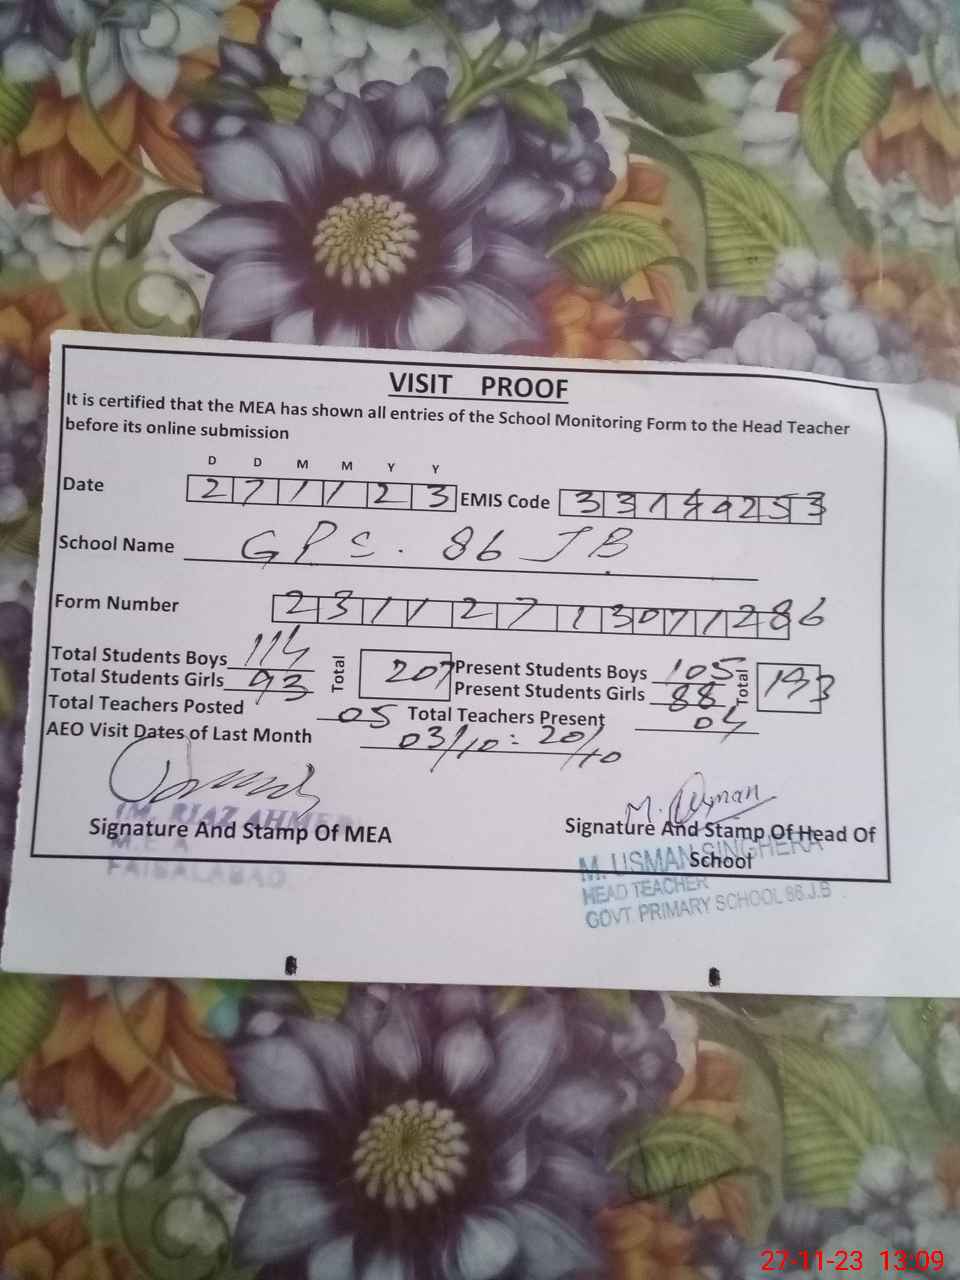 VISIT PROOF
It is certified that the MEA has shown all entries of the School Monitoring Form to the Head Teacher
before its online submission
D D M M Y Y
Date 2 7 1 1 2 3 EMIS Code
School Name GPS. 86 JB
Form Number 2 3 1 1 2 7 1 3 0 7 1 2 8 6
Total Students Boys 114 Total 207 Present Students Boys 105 Total 193
Total Students Girls 93 Present Students Girls 88
Total Teachers Posted 05 Total Teachers Present 04
AEO Visit Dates of Last Month 03/10 = 20/10
M. Usman
(M. RIAZ AHMED
Signature And Stamp Of MEA Signature And Stamp Of Head Of
School
M.E.A
FAISALABAD
M. USMAN SINGHERA
HEAD TEACHER
GOVT. PRIMARY SCHOOL 86.J.B
27-11-23 13:09